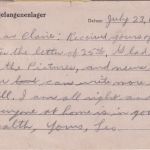 gefangenenlager
Datum: July 22, 
Claire: Received yours
the letter of 25th, Glad
the Pictures, and news
book can write more
I am all right and
everyone at home is in good
health, Yours, Leo.